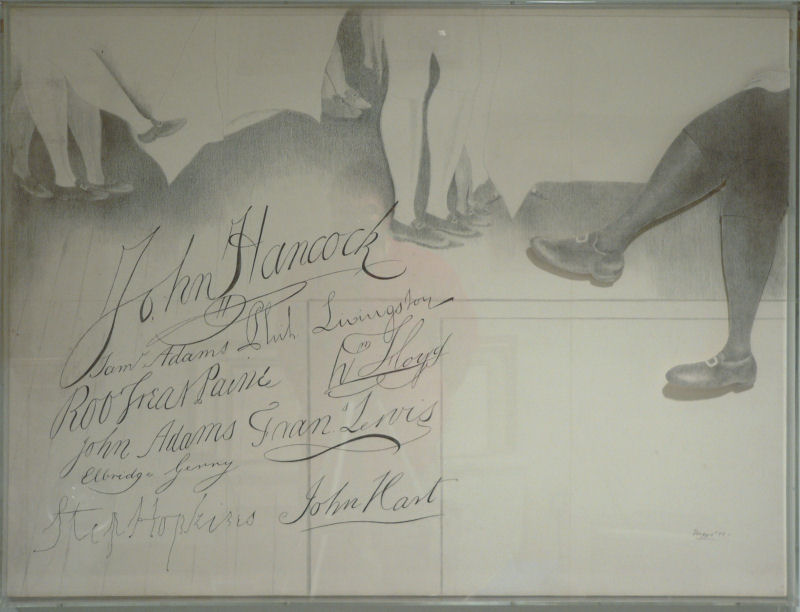 John Hancock
Sam<sup>l</sup> Adams Phil. Livingston
Rob Treat Paine Wm Floyd
John Adams Fran.s Lewis
Elbridge Gerry
Step Hopkins John Hart